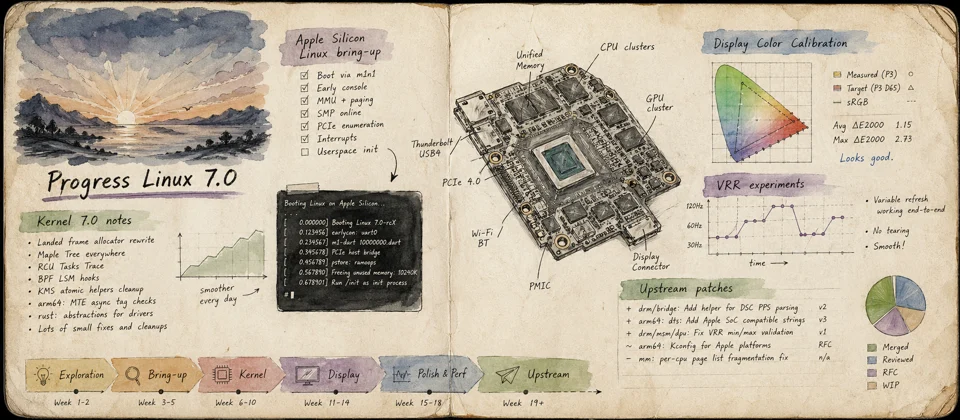 Progress Linux 7.0
Kernel 7.0 notes
• Landed frame allocator rewrite
• Maple Tree everywhere
• RCU Tasks Trace
• BPF LSM hooks
• KMS atomic helpers cleanup
• arm64: MTE async tag checks
• rust: abstractions for drivers
• Lots of small fixes and cleanups
smoother
every day
Apple Silicon
Linux bring-up
☑ Boot via m1n1
☑ Early console
☑ MMU + paging
☑ SMP online
☑ PCIe enumeration
☑ Interrupts
☐ Userspace init
Booting Linux on Apple Silicon..
. . .
[ 0.000000] Booting Linux 7.0-rcX
[ 0.123456] earlycon: uart0
[ 0.234567] m1-dart 10000000.dart
[ 0.345678] PCIe host bridge
[ 0.456789] pstore: ramoops
[ 0.567890] Freeing unused memory: 1024K
[ 0.678901] Run /init as init process
#
Unified
Memory
CPU clusters
GPU
cluster
Thunderbolt
USB4
PCIe 4.0
Wi-Fi
BT
PMIC
Display
Connector
Display Color Calibration
Measured (P3)
Target (P3 D65)
sRGB
Avg ΔE2000 1.15
Max ΔE2000 2.73
Looks good.
VRR experiments
120Hz
60Hz
30Hz
time
• Variable refresh
working end-to-end
• No tearing
• Smooth!
Upstream patches
+ drm/bridge: Add helper for DSC PPS parsing v2
+ arm64: dts: Add Apple SoC compatible strings v3
+ drm/msm/dpu: Fix VRR min/max validation v1
~ arm64: Kconfig for Apple platforms RFC
- mm: per-cpu page list fragmentation fix n/a
Merged
Reviewed
RFC
WIP
Exploration
Bring-up
Kernel
Display
Polish & Perf
Upstream
Week 1-2
Week 3-5
Week 6-10
Week 11-14
Week 15-18
Week 19+